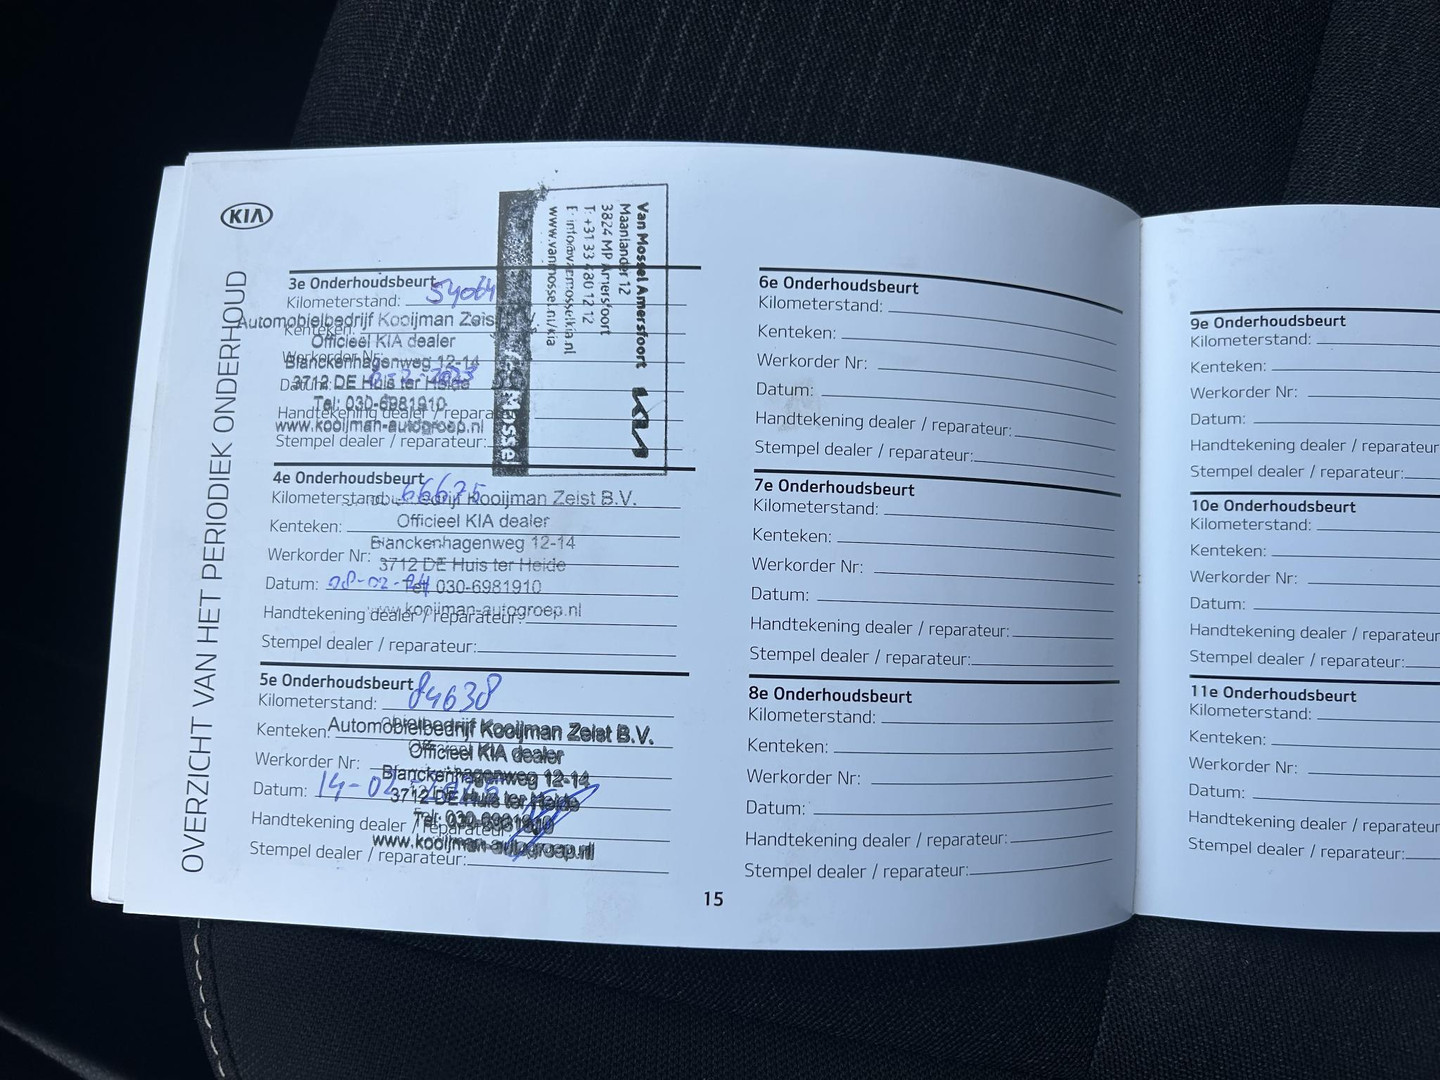 KIA
OVERZICHT VAN HET PERIODIEK ONDERHOUD
Van Mossel Amersfoort
Maanlander 12
3824 MP Amersfoort
T: +31 33 480 12 12
E: info@vanmosselkia.nl
www.vanmossel.nl/kia
KIA
3e Onderhoudsbeurt
Kilometerstand:
Kenteken:
Werkorder Nr:
Datum:
Handtekening dealer / reparateur:
Stempel dealer / reparateur:
Automobielbedrijf Kooijman Zeist B.V.
Officieel KIA dealer
Blanckenhagenweg 12-14
3712 DE Huis ter Heide
Tel: 030-6981910
www.kooijman-autogroep.nl
4e Onderhoudsbeurt
Kilometerstand: 66675
Kenteken:
Werkorder Nr:
Datum: 08-02-24
Handtekening dealer / reparateur:
Stempel dealer / reparateur:
Kooijman Zeist B.V.
Officieel KIA dealer
Blanckenhagenweg 12-14
3712 DE Huis ter Heide
Tel: 030-6981910
www.kooijman-autogroep.nl
5e Onderhoudsbeurt
Kilometerstand: 84638
Kenteken:
Werkorder Nr:
Datum: 14-02-
Handtekening dealer / reparateur:
Stempel dealer / reparateur:
Automobielbedrijf Kooijman Zeist B.V.
Officieel KIA dealer
Blanckenhagenweg 12-14
3712 DE Huis ter Heide
Tel: 030-6981910
www.kooijman-autogroep.nl
6e Onderhoudsbeurt
Kilometerstand:
Kenteken:
Werkorder Nr:
Datum:
Handtekening dealer / reparateur:
Stempel dealer / reparateur:
7e Onderhoudsbeurt
Kilometerstand:
Kenteken:
Werkorder Nr:
Datum:
Handtekening dealer / reparateur:
Stempel dealer / reparateur:
8e Onderhoudsbeurt
Kilometerstand:
Kenteken:
Werkorder Nr:
Datum:
Handtekening dealer / reparateur:
Stempel dealer / reparateur:
15
9e Onderhoudsbeurt
Kilometerstand:
Kenteken:
Werkorder Nr:
Datum:
Handtekening dealer / reparateur
Stempel dealer / reparateur:
10e Onderhoudsbeurt
Kilometerstand:
Kenteken:
Werkorder Nr:
Datum:
Handtekening dealer / reparateur
Stempel dealer / reparateur:
11e Onderhoudsbeurt
Kilometerstand:
Kenteken:
Werkorder Nr:
Datum:
Handtekening dealer / reparateur
Stempel dealer / reparateur: